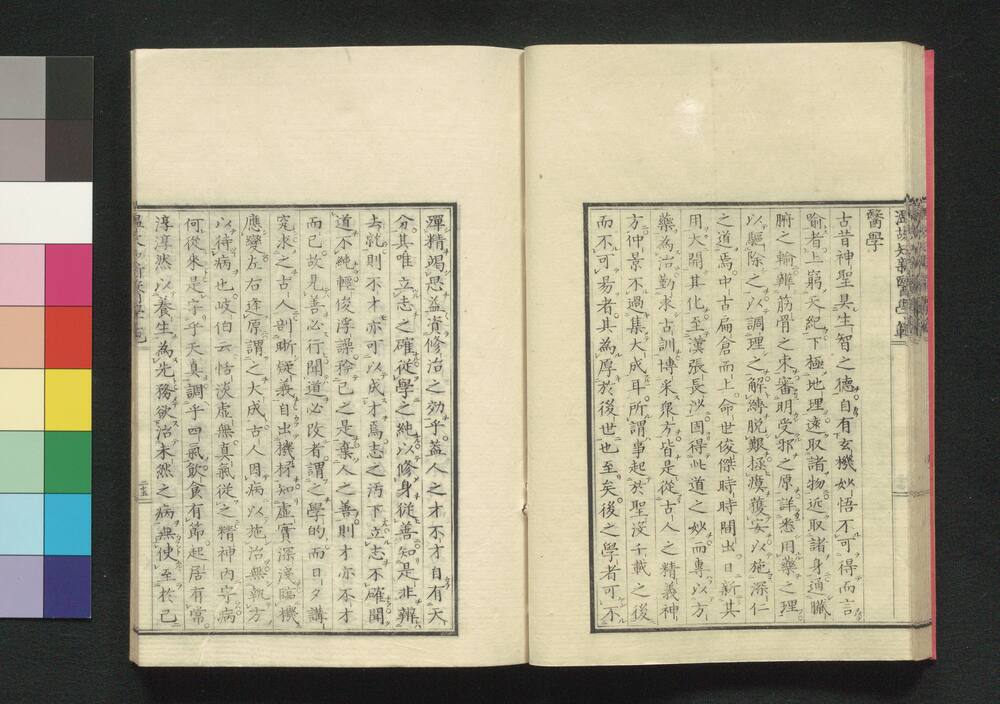 溫故知新醫學範
醫學
古昔神聖具生智之德自有玄機妙悟不可得而言
喻者上窮天紀下極地理遠取諸物近取諸身通臟
腑之輸辨筋骨之束審明受邪之原詳悉用藥之理
以驅除之以調理之解縛脫艱拯瘼獲安以施深仁
之道焉中古扁倉而上命世俊傑時時間出日新其
用大開其化至漢張長沙固得此道之妙而專以方
藥為治勤求古訓博采眾方皆是從古人之精義神
方仲景不過集大成耳所謂事起於聖沒千載之後
而不可易者其為厚於後世也至矣後之學者可不
殫精竭思益資修治之効乎蓋人之才不才自有天
分其唯立志之確從學之純以修身從善知是非辨
去就則不才亦可以成才焉志之污下立志不確聞
道不純輕俊浮譟矜己之是棄人之善則才亦不才
而已故見善必行聞道必改者謂之學的而日夕講
究求之古人剖晰疑義自出機杼知虛實深淺臨機
應變左右逢原謂之大成古人因病以施治無執方
以待病也岐伯云恬淡虛無真氣從之精神內守病
何從來是守乎天真調乎四氣飲食有節起居有常
淳淳然以養生為先務欲治未然之病無使至於已